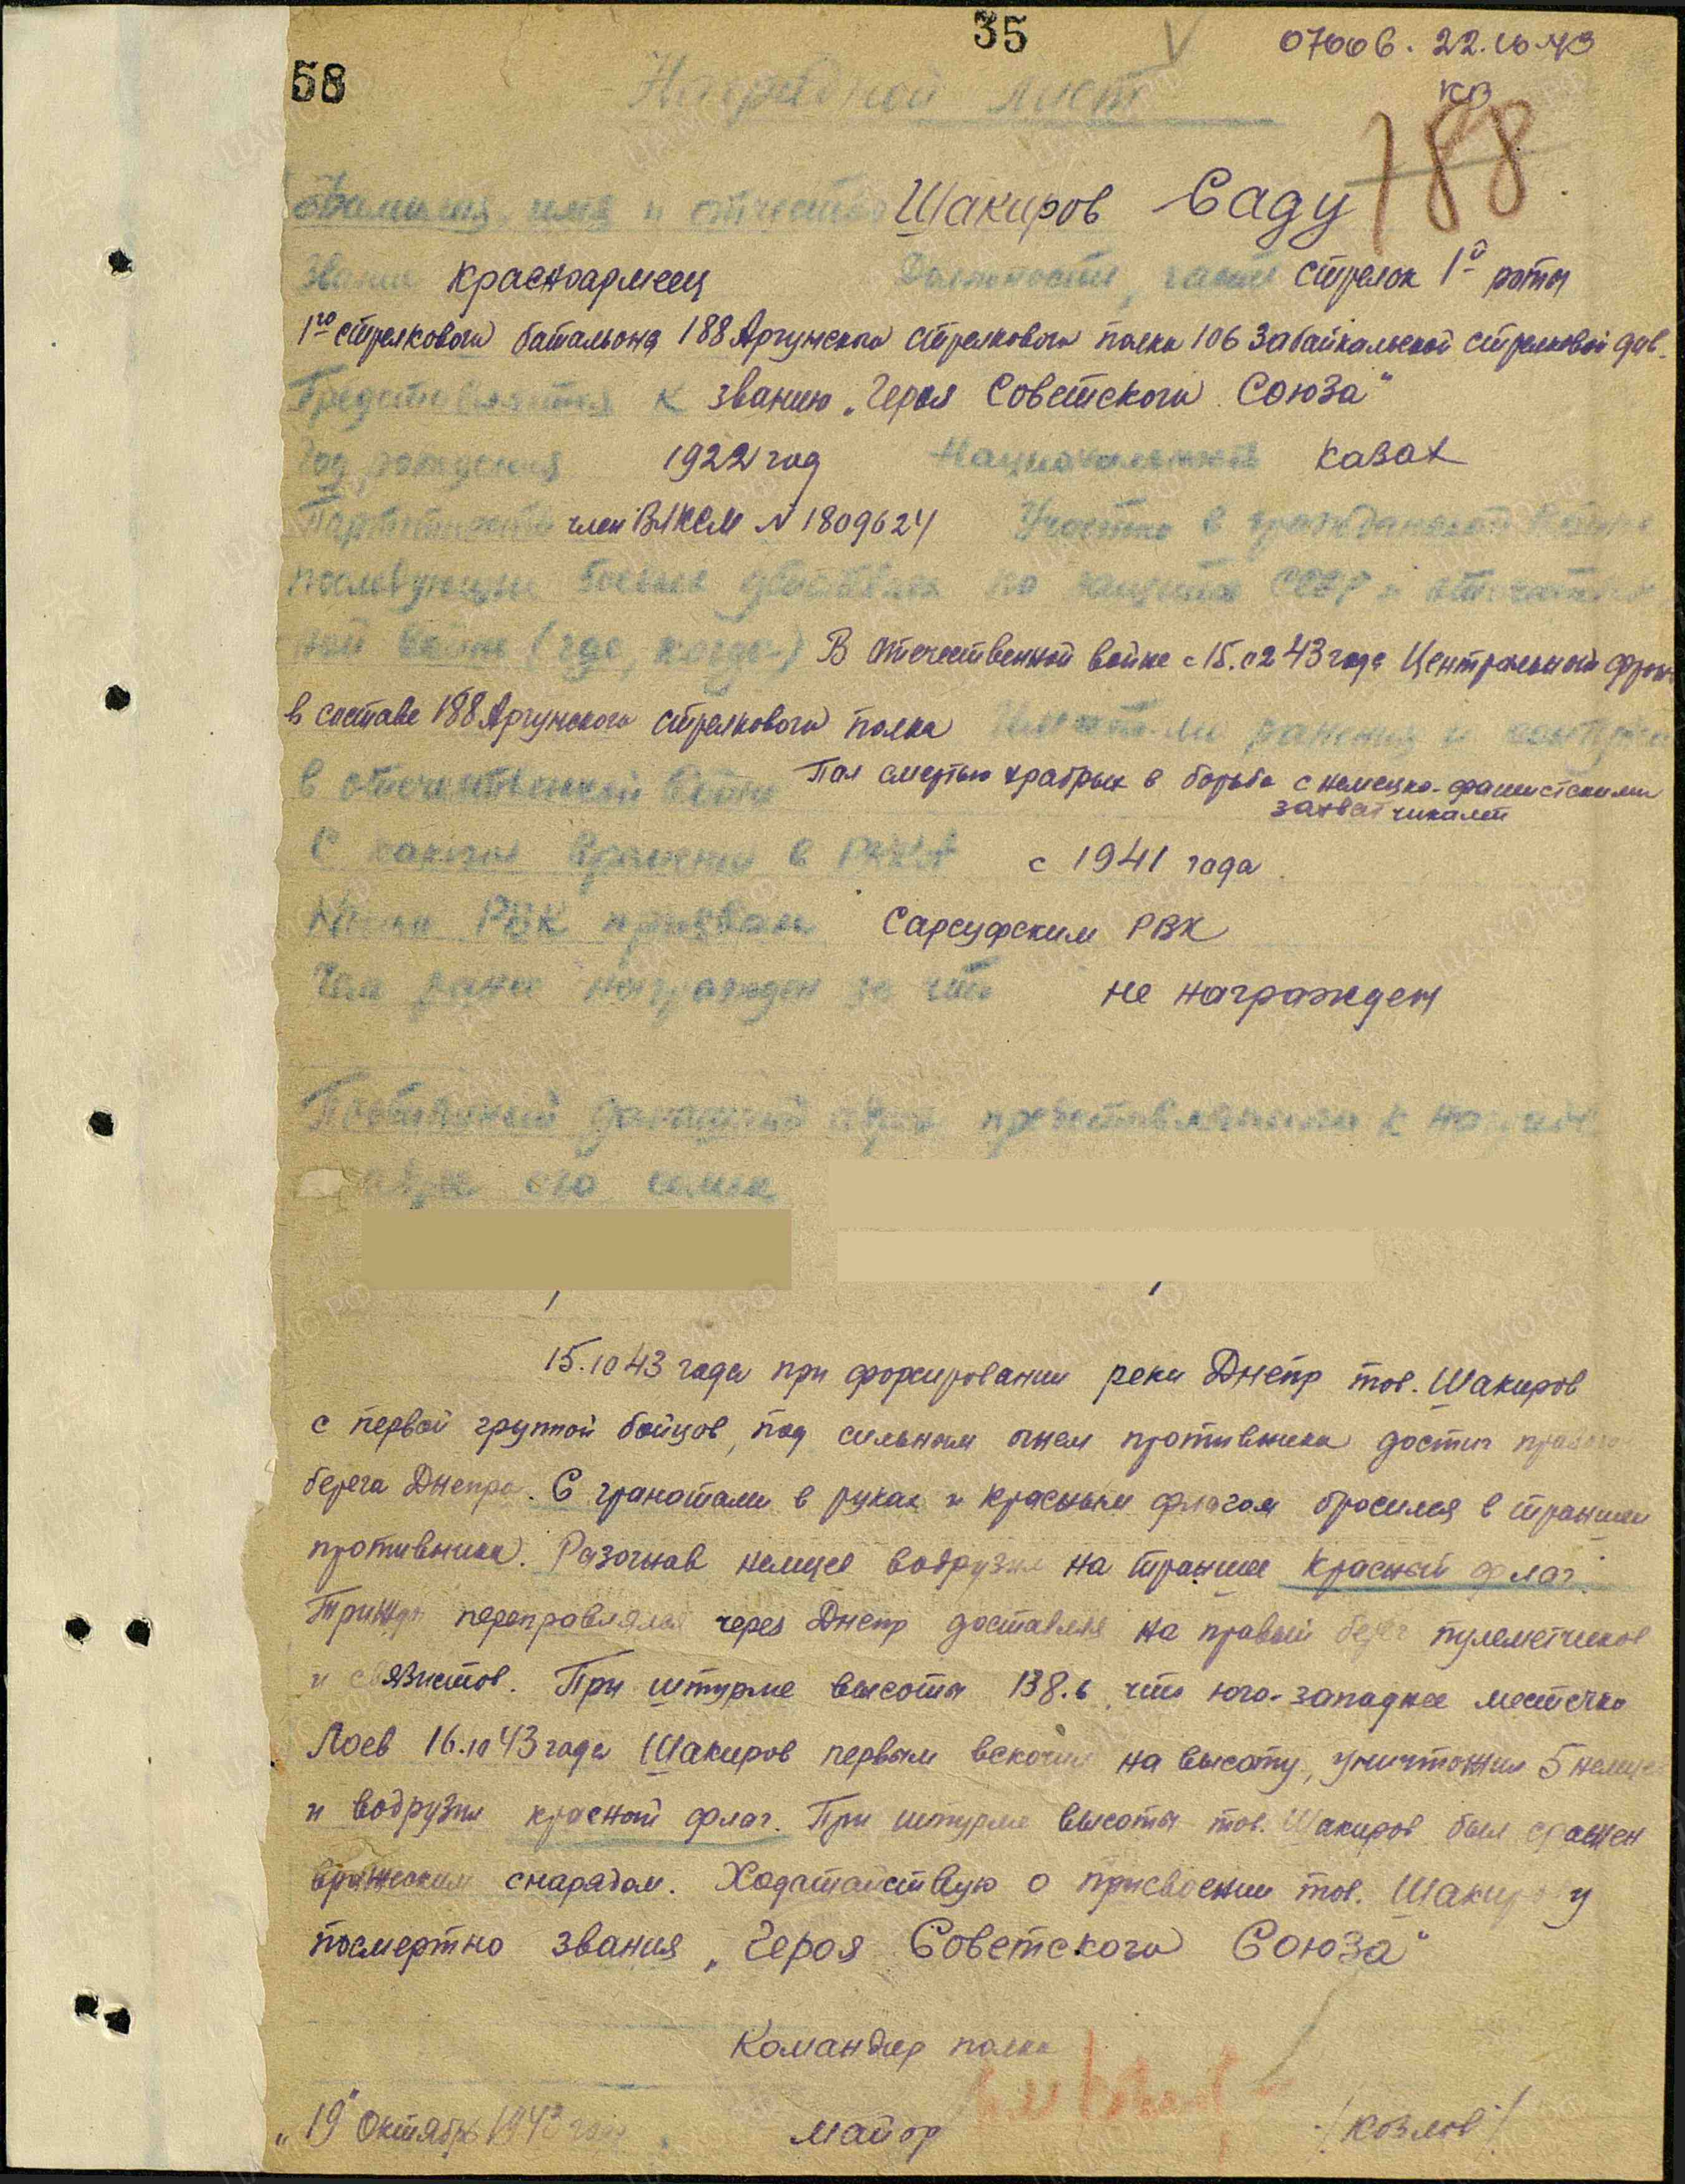 35
07006. 22.10.43
58
Наградной лист
КВ
188
Фамилия, имя и отчество Шакиров Саду
Звание красноармеец Должность, часть стрелок 1й роты
1го стрелкового батальона 188 Аргунского стрелкового полка 106 Забайкальской стрелковой див.
Представляется к званию „Героя Советского Союза"
Год рождения 1922 год Национальность казах
Партийность член ВЛКСМ N 1809624 Участие в гражданской войне
последующие боевые действия по защите СССР и отечествен
ной войне (где, когда) В Отечественной войне с 15.02 43 года Центральный фронт
в составе 188 Аргунского стрелкового полка Имеет ли ранения и контузии
в отечественной войне Пал смертью храбрых в борьбе с немецко-фашистскими
захватчиками
С какого времени в РККА с 1941 года
Каким РВК призван Сарсуфским РВК
Чем ранее награжден за что не награжден
Постоянный домашний адрес представляемого к
адрес его семьи
15.10 43 года при форсировании реки Днепр тов. Шакиров
с первой группой бойцов, под сильным огнем противника достиг правого
берега Днепра. С гранатами в руках и красным флагом бросился в траншеи
противника. Разогнав немцев водрузил на траншее Красный флаг.
Трижды переправлялся через Днепр доставляя на правый берег пулеметчиков
и связистов. При штурме высоты 138.6, что юго-западнее местечко
Лоев 16.10 43 года Шакиров первым вскочил на высоту, уничтожил 5 немцев
и водрузил красный флаг. При штурме высоты тов. Шакиров был сражен
вражеским снарядом. Ходатайствую о присвоении тов. Шакирову
посмертно звания „Героя Советского Союза"
Командир полка
„19" Октябрь 1943 года майор /Козлов/